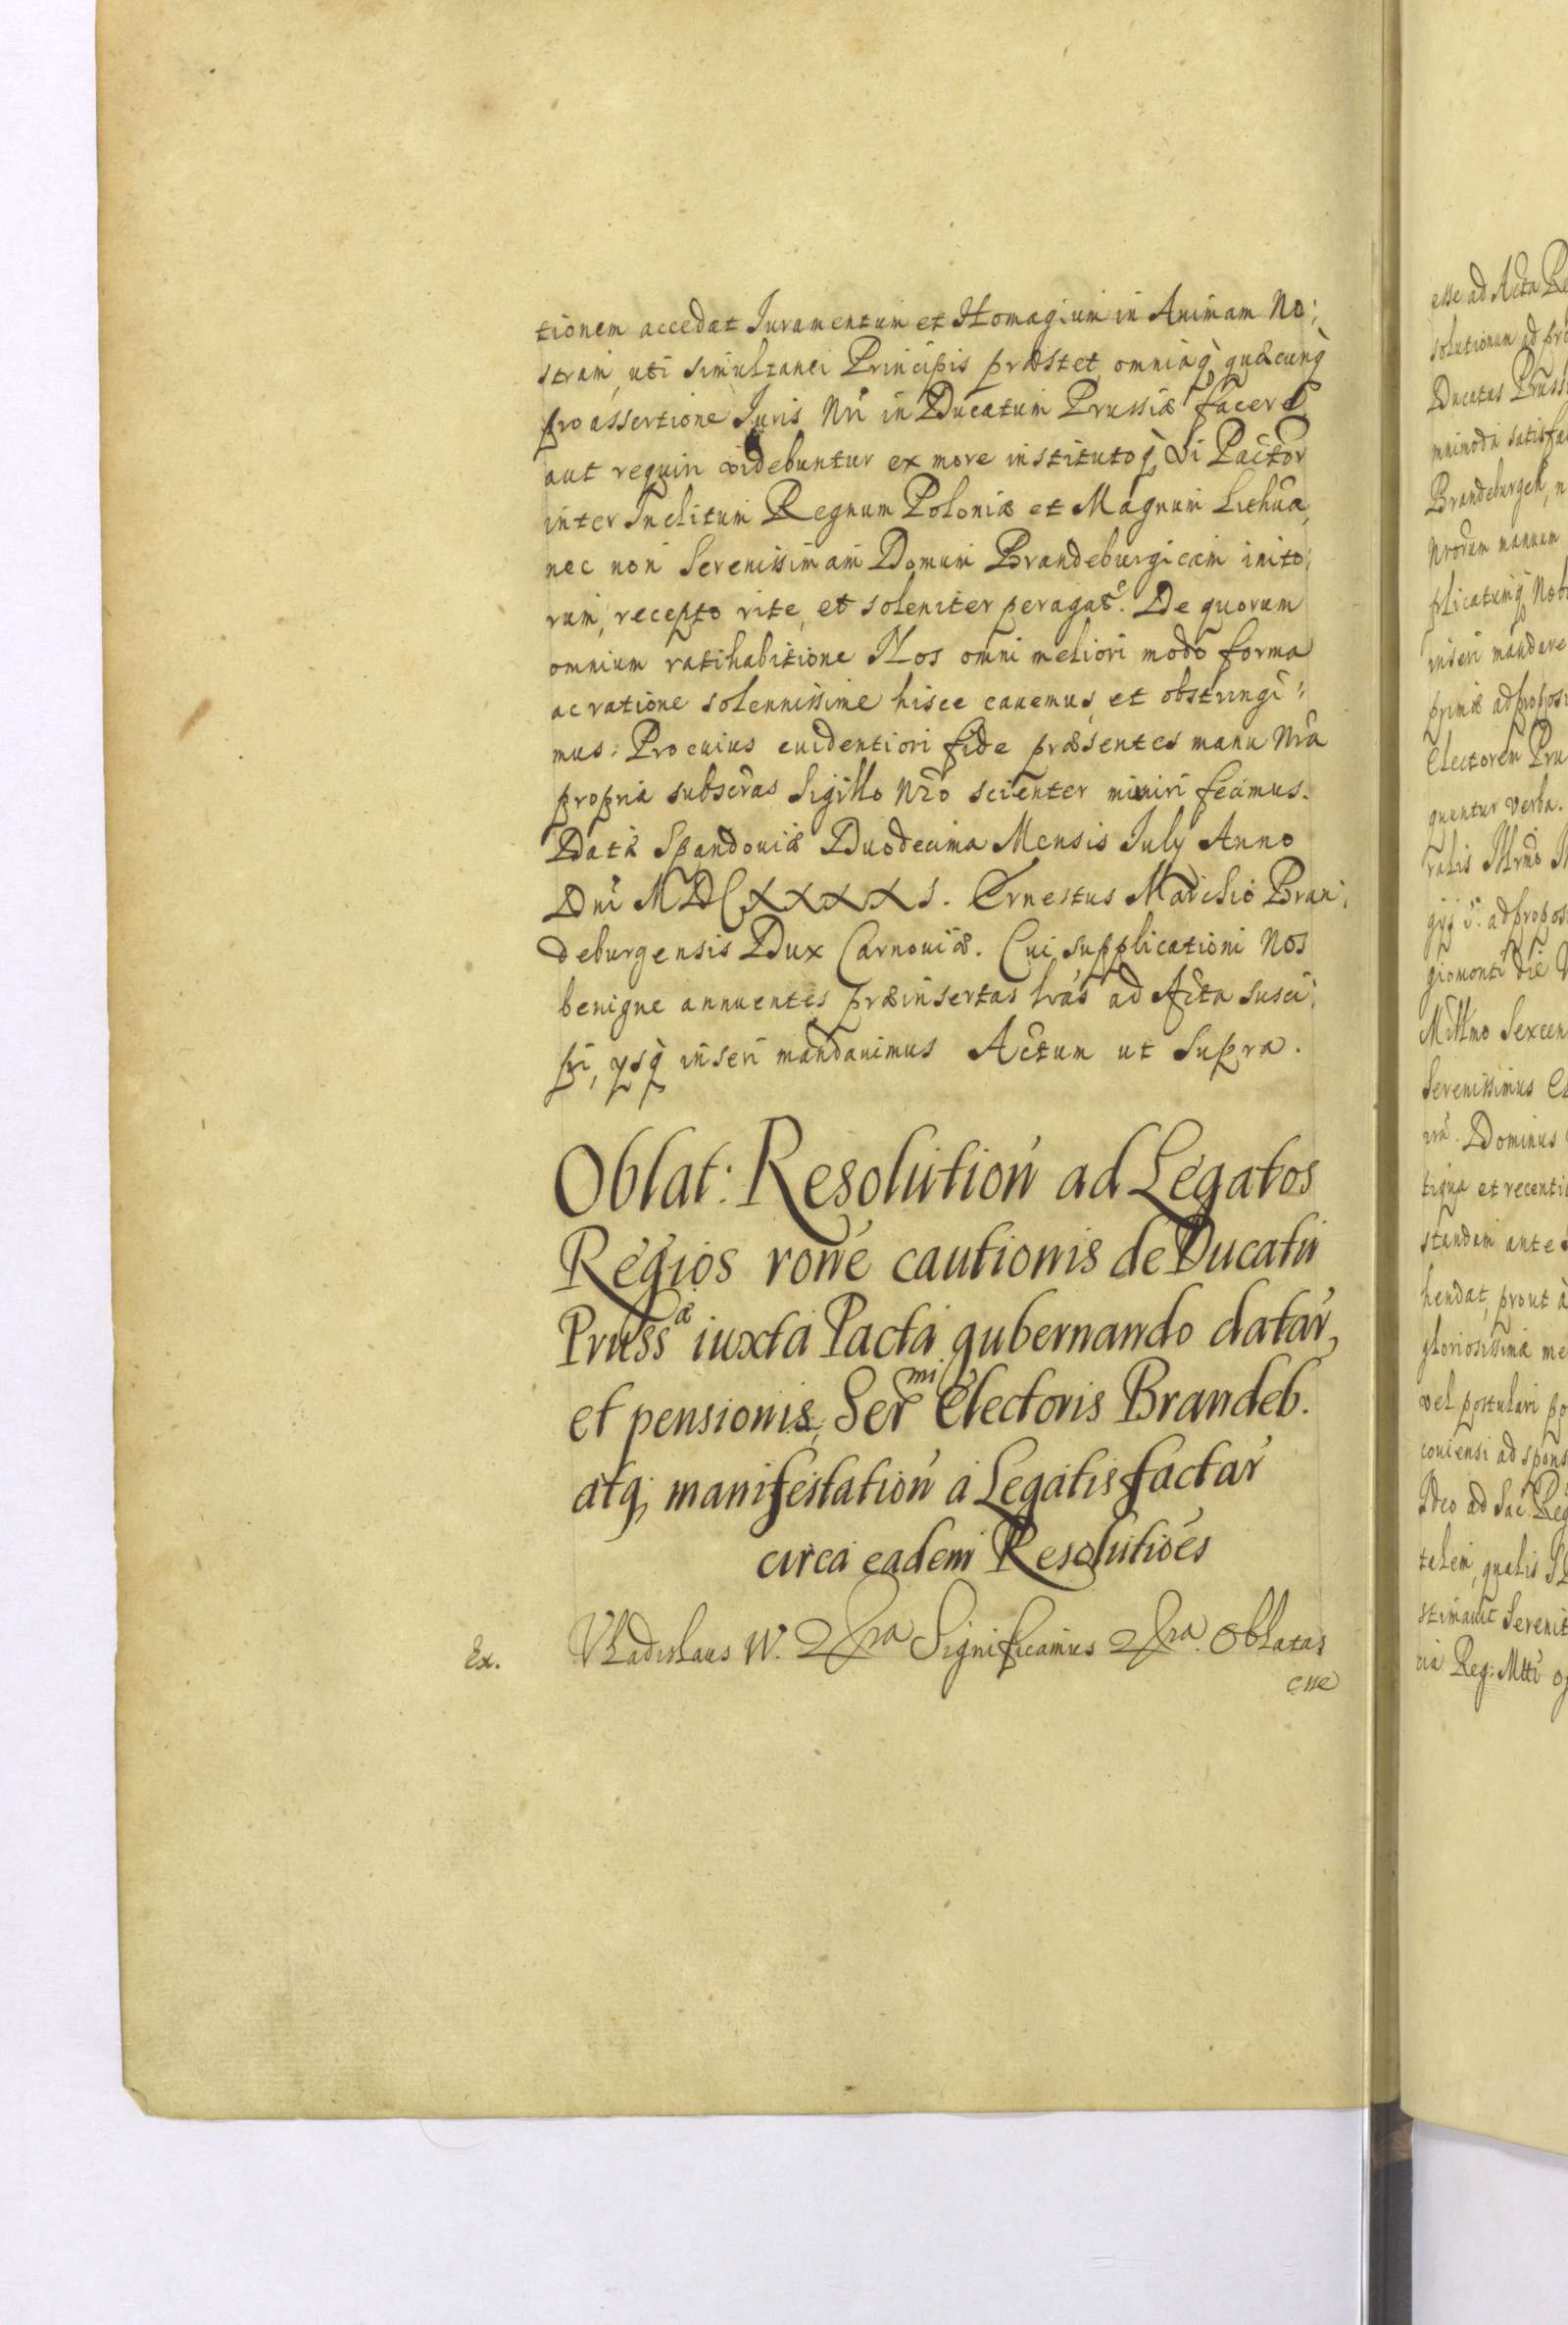 tionem accedat Iuramentum et Homagium in Animam No:
stram, uti simultanei Principis præstet, omniaq̀ quæcunq̀
pro assertione Iuris Nr̄i in Ducatum Prussiæ facere
aut requiri videbuntur ex more institutoq̀ Pactor̄
inter Inclitum Regnum Poloniæ et Magnum Lithua,
nec non Serenissimam Domum Brandeburgicam inito:
rum, recepto rite, et soleniter peragat̄. De quorum
omnium ratihabitione Nos omni meliori modo forma
ac ratione solennissime hisce cauemus, et obstringi:
mus: Pro cuius euidentiori fide præsentes manu Nr̄a
propria subscr̄as Sigillo Nr̄o scienter muniri fecimus.
Data Spandouiæ Duodecima Mensis July Anno
Dn̄i MDCXXXXI. Ernestus Marchio Bran:
deburgensis Dux Carnouiæ. Cui supplicationi Nos
benigne annuentes præinsertas lr̄as ad Acta susci:
pi, ysq̀ inseri mandauimus Actum ut Supra.
Oblat: Resolution̄ ad Legatos
Regios ron̄e cautionis de Ducatu
Pruss^æ iuxta Pacta gubernando datar̄,
et pensionis, Ser^mi Electoris Brandeb.
atq, manifestation̄ a Legatis factar̄
circa eadem Resolutiões
Ex. Vladislaus IV. Significamus Oblatas
esse
esse ad Acta Re
solutionum ad pro
Ducatus Pruss
mnimoda satisfa
Brandeburgen, n
Nrorum manum
plicatumq̀ Nob
inseri mandare
primæ ad propos
Electorem Pru
quuntur verba.
ralis Illrmo
gyq S. ad propos
giomonti die
Millmo Sexcen
Serenissimus
Dominus
tiqua et recenti
standam ante
hendat, prout
gloriosissimæ me
vel postulari po
couiensi ad spons
Ideo ad Sac Reg
talem, qualis
stimauit Serenit
ria Reg: Mtti